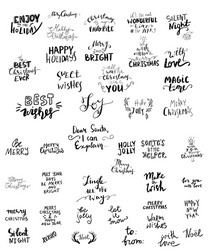 ENJOY
the
HOLIDAY
Christmas
it's the most
WONDERFUL
time
of the year
Silent
Night
the
BEST
Christmas
Ever
HAPPY
HOLIDAYS
Merry
and
BRIGHT
all I want
for
CHRISTMAS
with
Love
BEST
Wishes
sweet
wishes
Joy
MAGIC
time
MERRY
CHRISTMAS
BE
MERRY
Merry
Christmas
Dear Santa,
I can
Explain...
HOLLY
JOLLY
SANTA'S
LITTLE
HELPER
MERRY
CHRISTMAS
MAY YOUR
DAYS BE
MERRY AND
BRIGHT
Jingle
all the
Way
make
a
wish
for
you
merry
christmas
MERRY
CHRISTMAS
& A
HAPPY
NEW YEAR
holly
jolly
let
it
snow
MERRY
CHRISTMAS
HAPPY
NEW
YEAR
Silent
NIGHT
Noel
to:
from:
warm
wishes
with
love
Noel